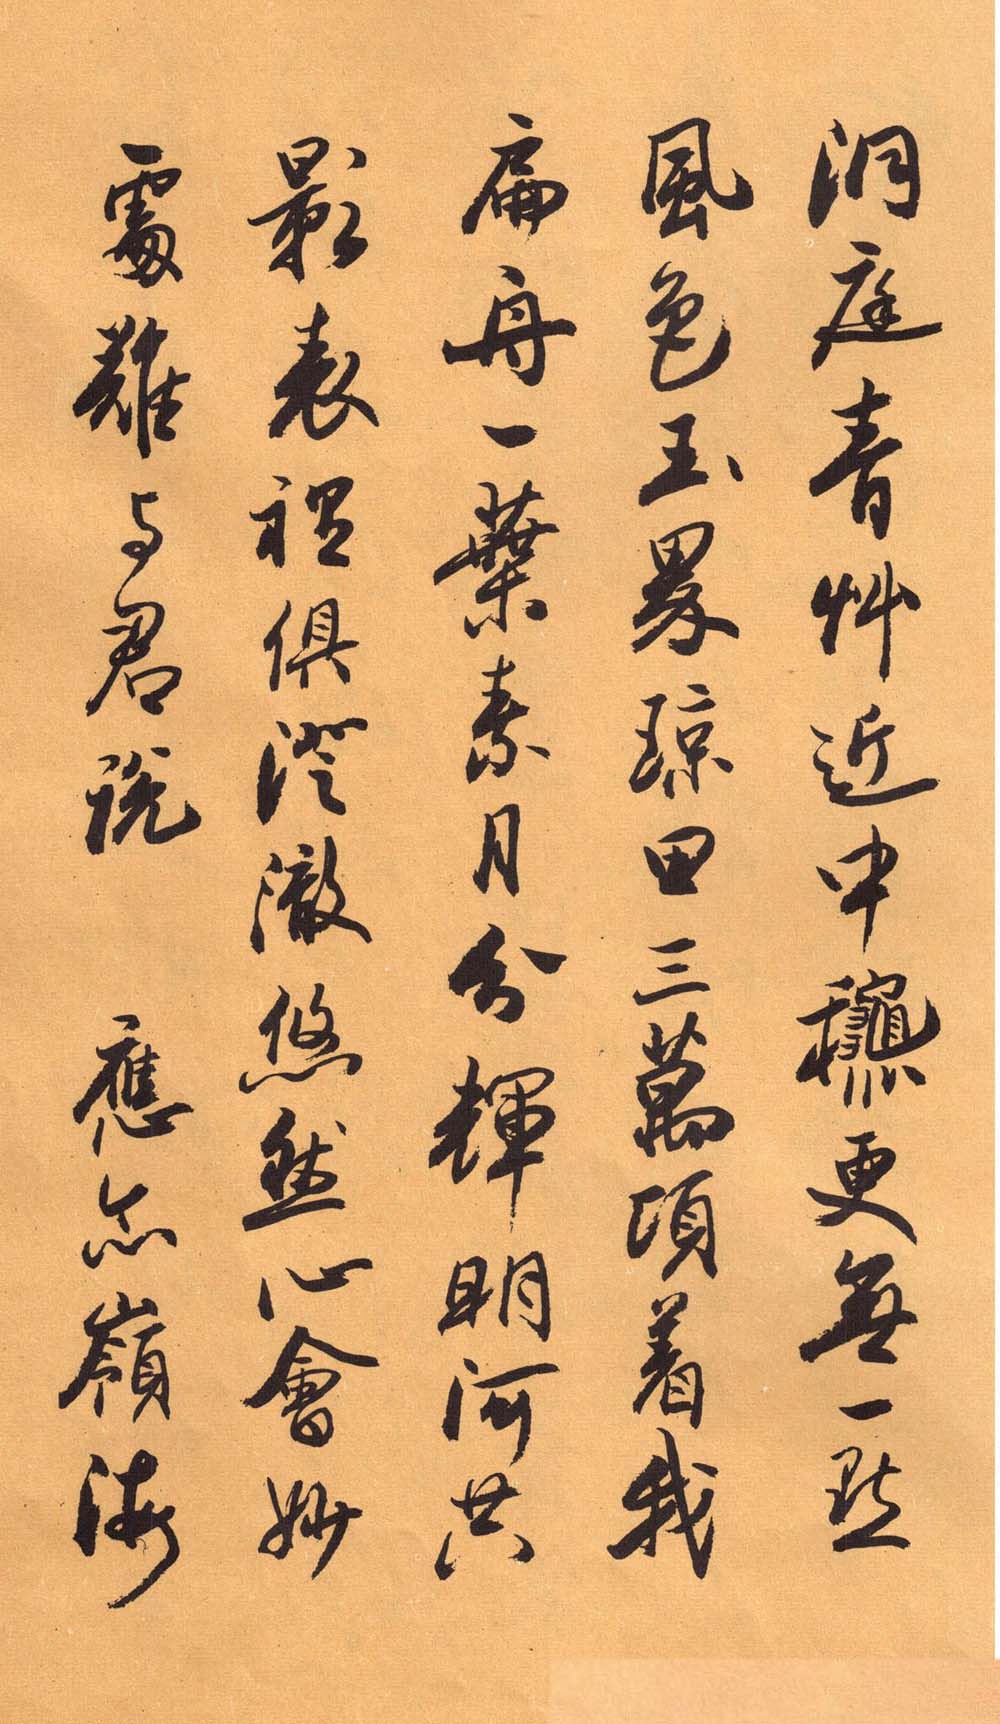 洞庭青艸近中龝更無一點
風色玉界瓊田三萬頃着我
扁舟一葉素月分輝明河共
影表裡俱澄澈悠然心會妙
處難与君說 應念嶺海